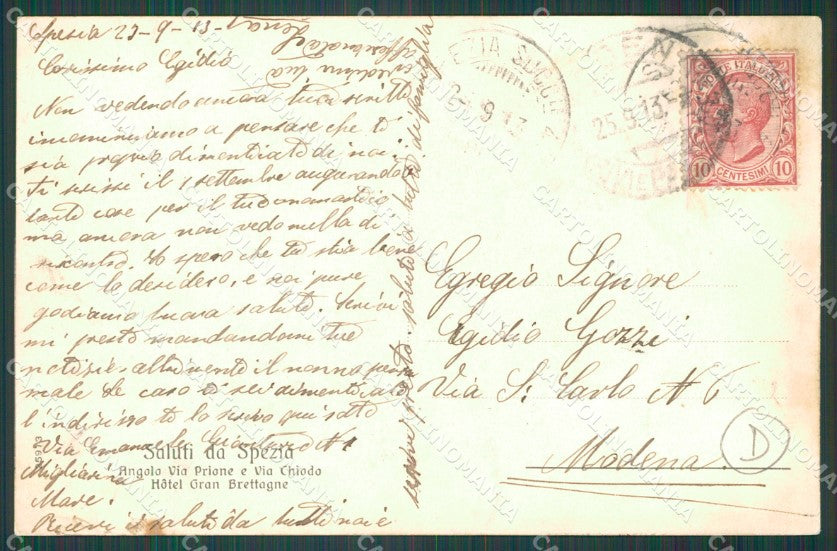 Spezia 23-9-13
Carissimo Egidio
Non vedendo ancora tuoi scritti
incominciamo a pensare che ti
sia proprio dimenticato di noi.
Ti scrissi il 1 settembre augurandoti
tante cose per il tuo onomastico,
ma ancora non vedo nulla di
riscontro. Io spero che tu stia bene
come lo desidero, e noi pure
godiamo buona salute. Scrivi
mi presto mandandomi tue
notizie, altrimenti il nonno pensa
male. Se caso ti sei dimenticato
l'indirisso te lo scrivo qui sotto
Via Emanuele N 1
Migliarina
Mare.
Ricevi i saluti da tutti noi e
scrivi presto. saluti a tutta di famiglia
affezionata
cugina tua
Saluti da Spezia
Angolo Via Prione e Via Chiodo
Hôtel Gran Brettagne
25.9.13
POSTE ITALIANE
10 CENTESIMI 10
Egregio Signore
Egidio Gozzi
Via S. Carlo N 6
Modena
D
CARTOLINOMANIA